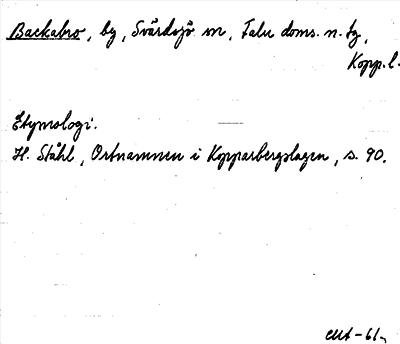 Backabro, by, Svärdsjö sn, Falu doms. n. tg,
Kopp. l.
Etymologi.
H. Ståhl, Ortnamnen i Kopparbergslagen, s. 90.
-61